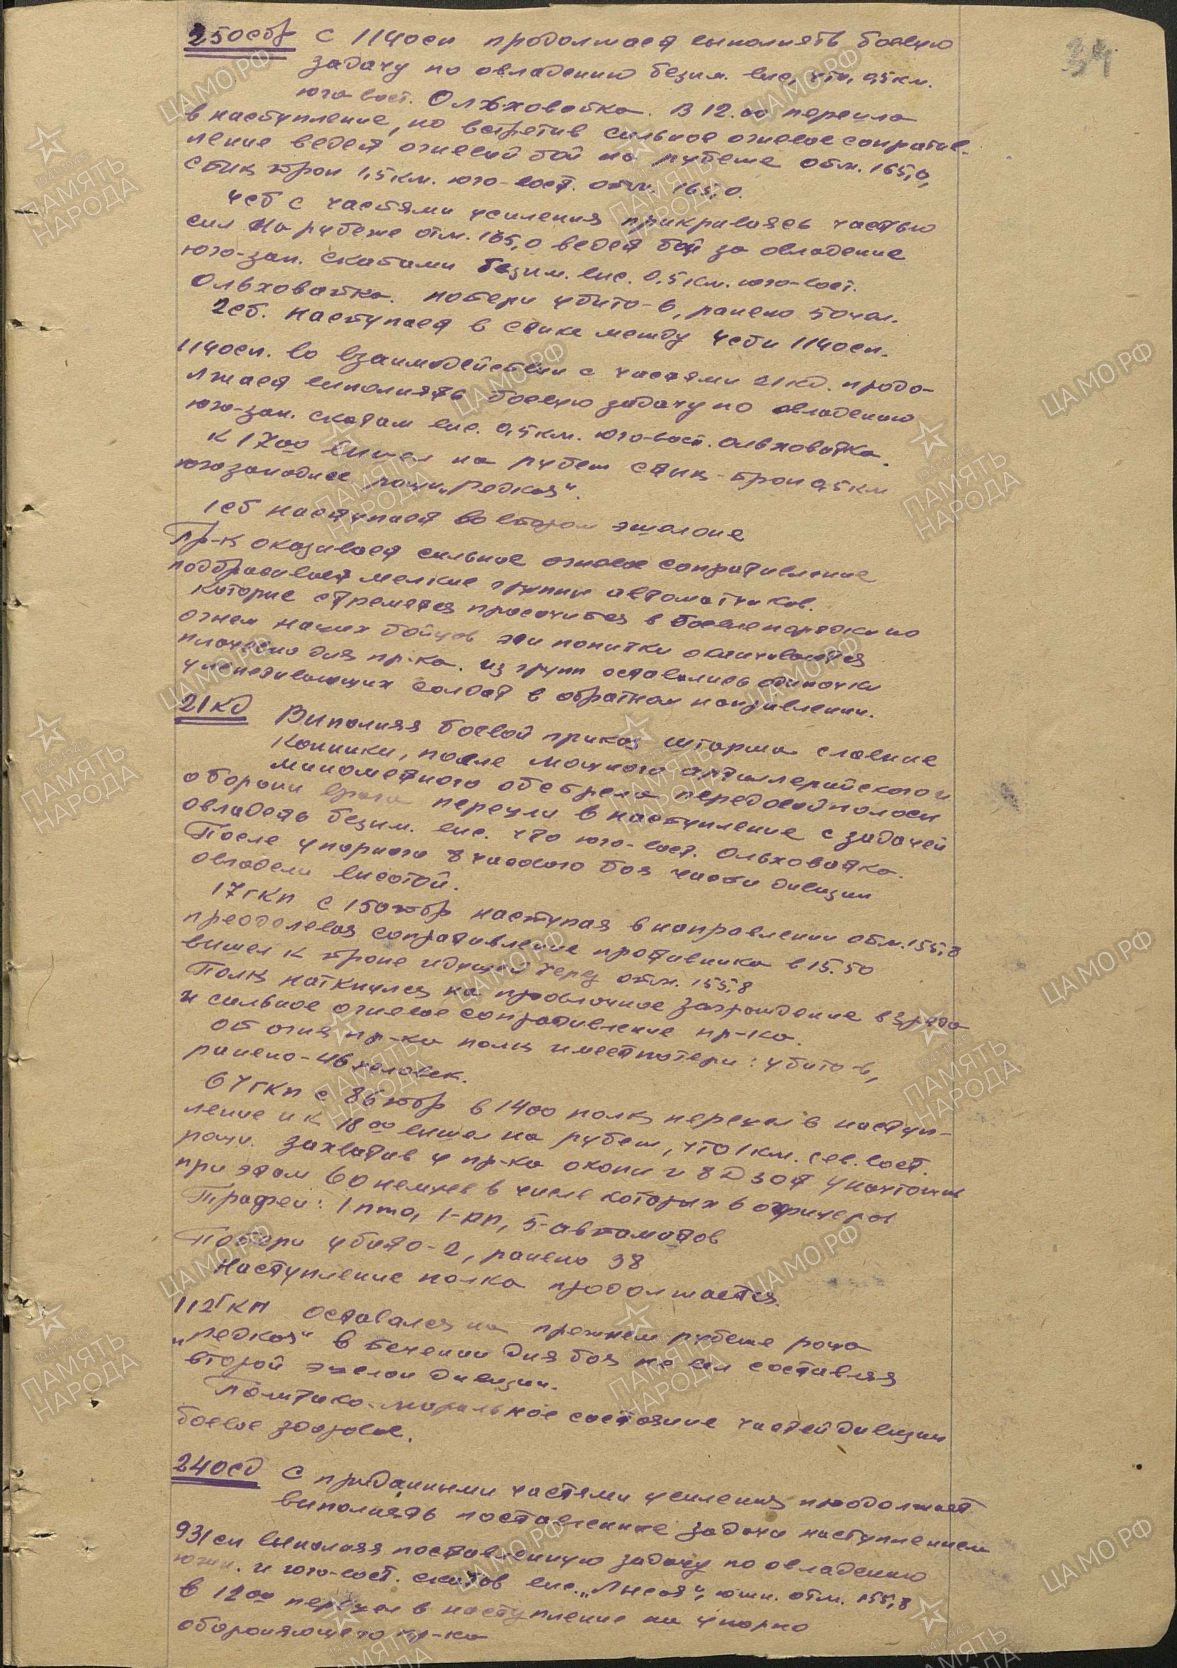 34
250 осбр с 1140 сп продолжает выполнять боевую
задачу по овладению безим. выс, что 0,5 км.
юго вост. Ольховатка. В 12.00 перешла
в наступление, но встретив сильное огневое сопротив-
ление ведет огневой бой на рубеже отм. 165,0,
стык троп 1,5 км. юго-вост. отм. 165,0.
4 сб с частями усиления прикрываясь частью
сил на рубеже отм. 165,0 ведет бой за овладение
юго-зап. скатами безим. выс. 0,5 км. юго-вост.
Ольховатка. потери убито-6, ранено 50 чел.
2 сб. наступает в стыке между 4 сб и 1140 сп.
1140 сп. во взаимодействии с частями 21 кд. продо-
лжает выполнять боевую задачу по овладению
юго-зап. скатам выс. 0,5 км. юго-вост. Ольховатка.
К 17 00 вышел на рубеж стык-троп 0,5 км
югозападнее рощи „Редкая".
1 сб наступает во втором эшелоне
Пр-к оказывает сильное огневое сопротивление
подбрасывает мелкие группы автоматчиков.
которые стремятся просочится в боевые порядки но
огнем наших бойцов эти попытки оканчиваются
плачевно для пр-ка. из групп оставались одиночки
улепетывающих солдат в обратном направлении.
21 кд Выполняя боевой приказ штарма славные
конники, после мощного артиллерийского и
минометного обстрела передовой полосы
обороны врага перешли в наступление с задачей
овладеть безим. выс. что юго-вост. Ольховатка.
После упорного 8 часового боя части дивизии
овладели высотой.
17 гкп с 150 тбр наступая в направлении отм. 155,8
преодолевая сопротивление противника в 15.50
вышел к тропе идущей через отм. 155,8
Полк наткнулся на проволочное заграждение в 3 ряда
и сильное огневое сопротивление пр-ка.
от огня пр-ка полк имеет потери: убито-6,
ранено-46 человек.
67 гкп с 86 тбр в 14 00 полк перешел в наступ-
ление и к 18 00 вышел на рубеж, что 1 км. сев. вост.
рощи. захватив у пр-ка окопы и 8 ДЗОТ уничтожив
при этом 60 немцев в числе которых 6 офицеров
Трофеи: 1 пто, 1-рп, 5-автоматов
Потери убито-2, ранено 38
Наступление полка продолжается.
112 гкп оставался на прежнем рубеже роща
„Редкая" в течении дня боя не вел составляя
второй эшелон дивизии.
Политико-моральное состояние частей дивизии
боевое здоровое.
240 сд с приданными частями усиления продолжает
выполнять поставленные задачи наступлением
931 сп выполняя поставленную задачу по овладению
южн. и юго-вост. скатов выс. „Лысая", южн. отм. 155,8
в 12 00 перешел в наступление на упорно
обороняющегося пр-ка